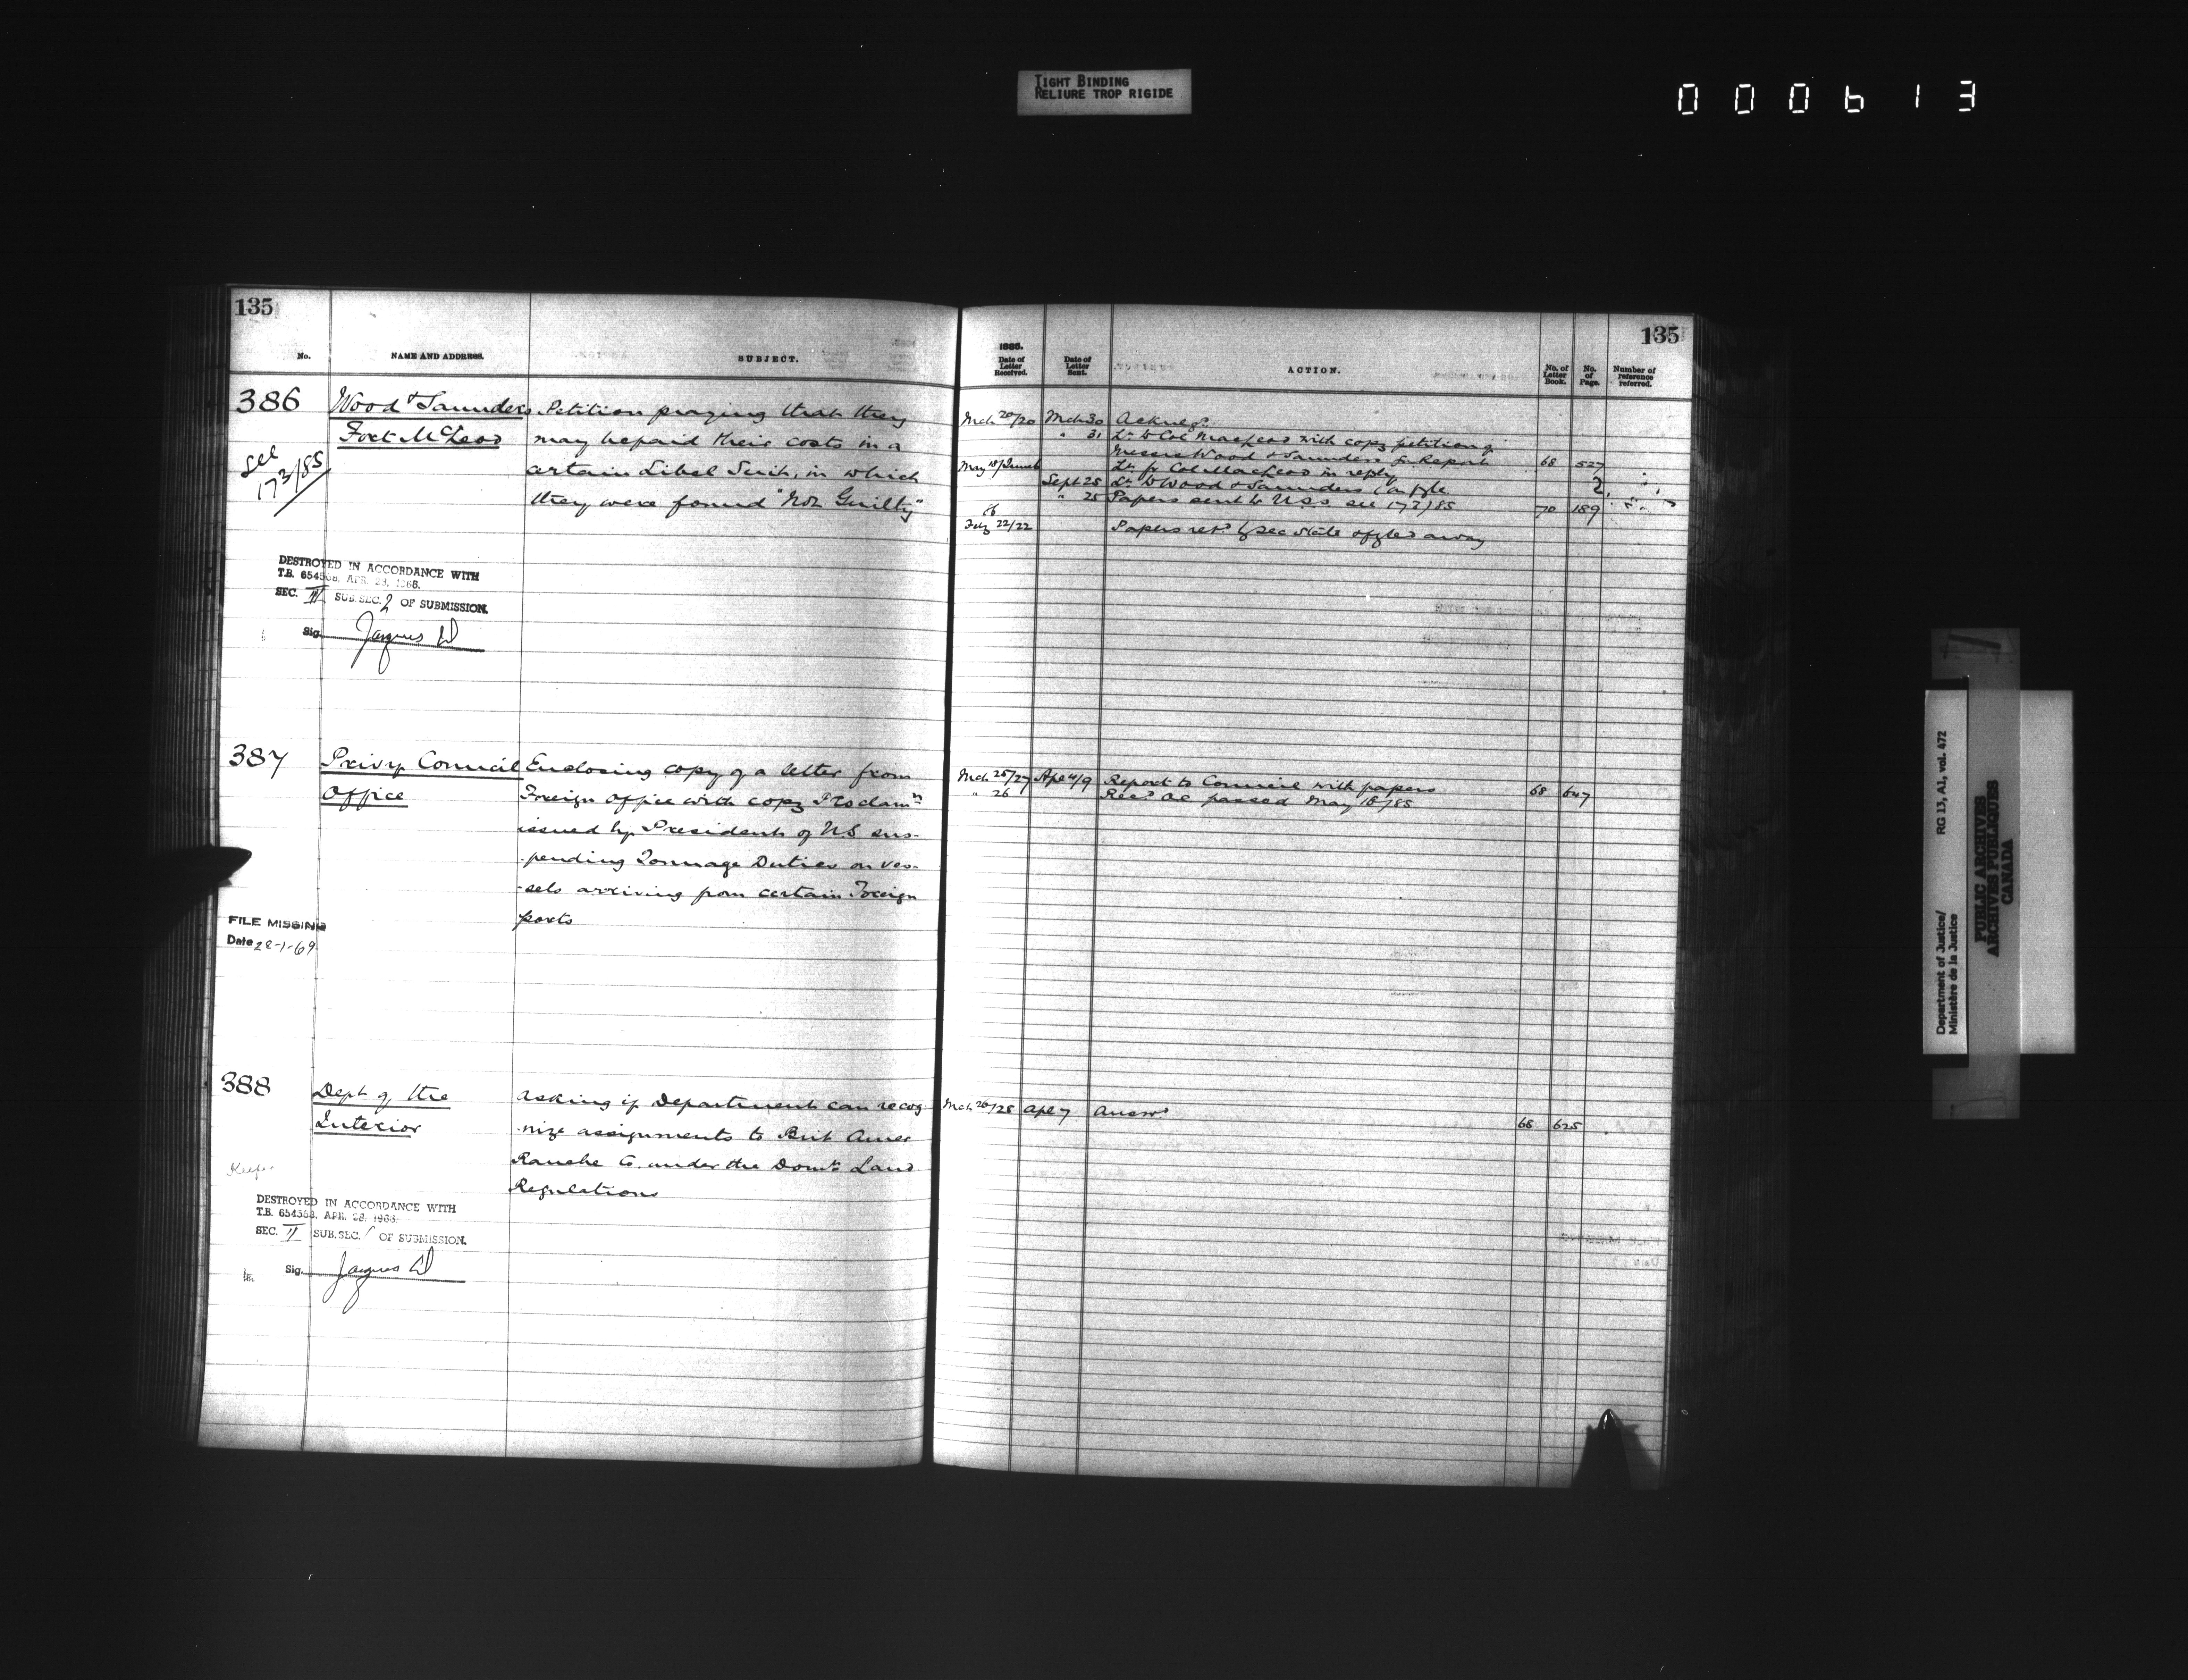 TIGHT BINDING
RELIURE TROP RIGIDE
000613
135
No.
NAME AND ADDRESS.
SUBJECT.
386
Wood & Saunders
Fort McLeod
see
173/85
Petition praying that they
may be paid their costs in a
certain Libel Suit, in which
they were found "Not Guilty"
DESTROYED IN ACCORDANCE WITH
T.B. 654568, APR. 28, 1968.
SEC. IV SUB.SEC. 2 OF SUBMISSION.
Sig. Jacques
387
Privy Council
Office
Enclosing copy of a letter from
Foreign Office with copy Proclamn
issued by President of U.S. sus-
pending Tonnage Duties on ves-
-sels arriving from certain Foreign
ports
FILE MISSING
Date 28-1-69
388
Dept of the
Interior
Keefer
asking if Department can recog
-nize assignments to Brit Amer
Ranche Co. under the Domn Land
Regulations
DESTROYED IN ACCORDANCE WITH
T.B. 654568, APR. 28, 1968.
SEC. II SUB.SEC. 1 OF SUBMISSION.
Sig. Jacques
135
1885.
Date of Letter Received.
Date of Letter Sent.
ACTION.
No. of Letter Book.
No. of Page.
Number of reference referred.
Mch 20/30 Mch 30 Acknegd
" 31 Lr to Col Macleod with copy petition of
Messrs Wood & Saunders for Report 68 527
May 18/June 6 Lr fr Col Macleod in reply
Sept 25 Lr to Wood & Saunders 2
" 25 Papers sent to U.S.S. see 173/85 70 189
86
Feby 22/22 Papers retd by Sec State & fyled away
Mch 25/27 Apl 4/9 Report to Council with papers 68 647
" 26 Recd OC passed May 18/85
Mch 26/28 Apl 7 Answd 68 625
Department of Justice/
Ministère de la Justice
RG 13, A1, vol. 472
PUBLIC ARCHIVES
ARCHIVES PUBLIQUES
CANADA